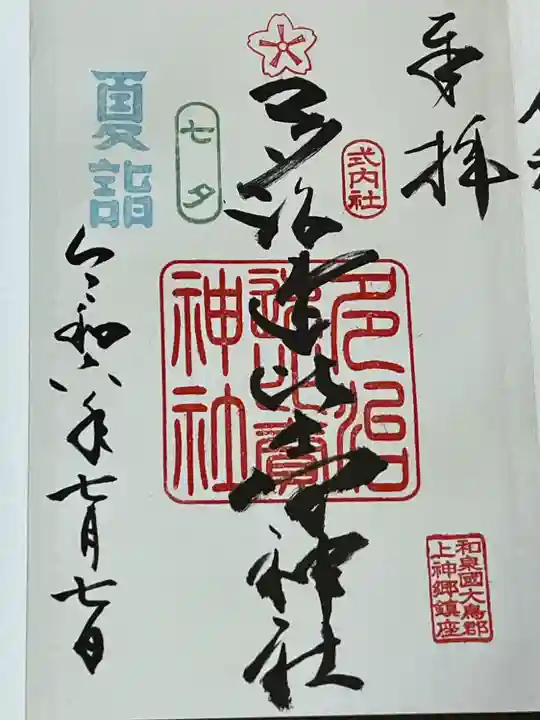 奉拝
式内社
多治速比売神社
多治
速比賣
神社
和泉國大鳥郡
上神郷鎮座
七夕
夏詣
令和六年七月七日